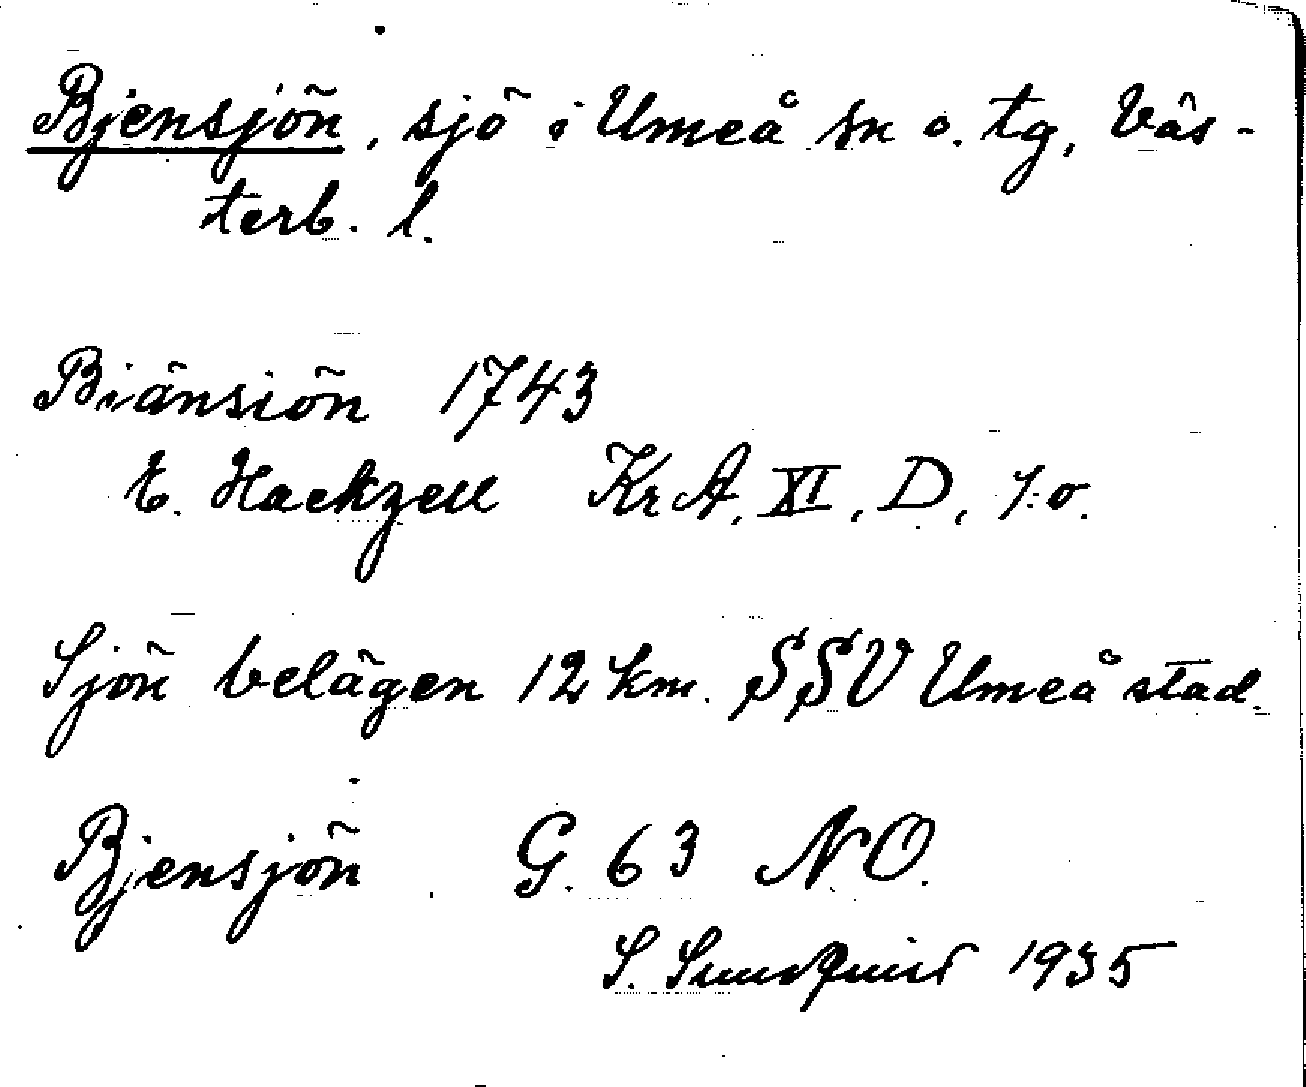 Bjensjön, sjö i Umeå sn o. tg, Väs-
terb. l.
Biänsiön 1743
E. Hackzell KrA, XI, D, 1:o.
Sjön belägen 12 km. SSV Umeå stad.
Bjensjön G. 63 NO.
S. Sundquist 1935